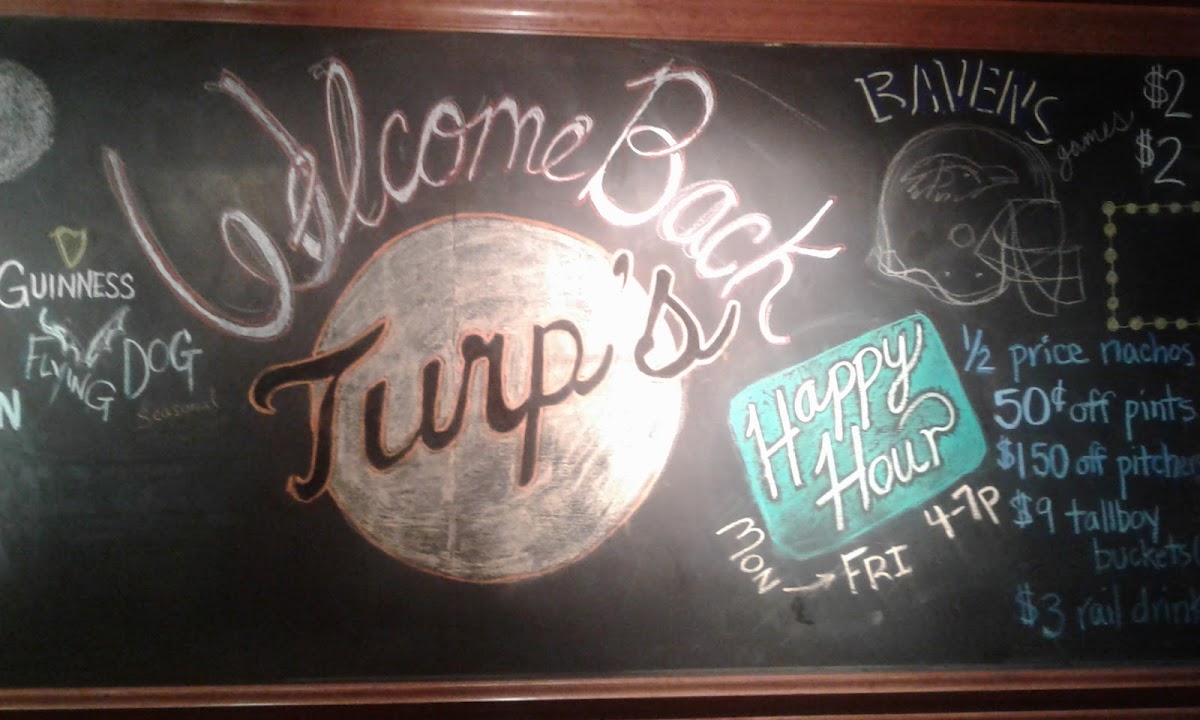 Welcome Back
Turp's
GUINNESS
FLYING DOG
Seasonal
N
RAVENS
games
$2
$2
Happy
Hour
MON → FRI 4-7P
1/2 price nachos
50¢ off pints
$150 off pitche
$9 tallboy
buckets
$3 rail drin